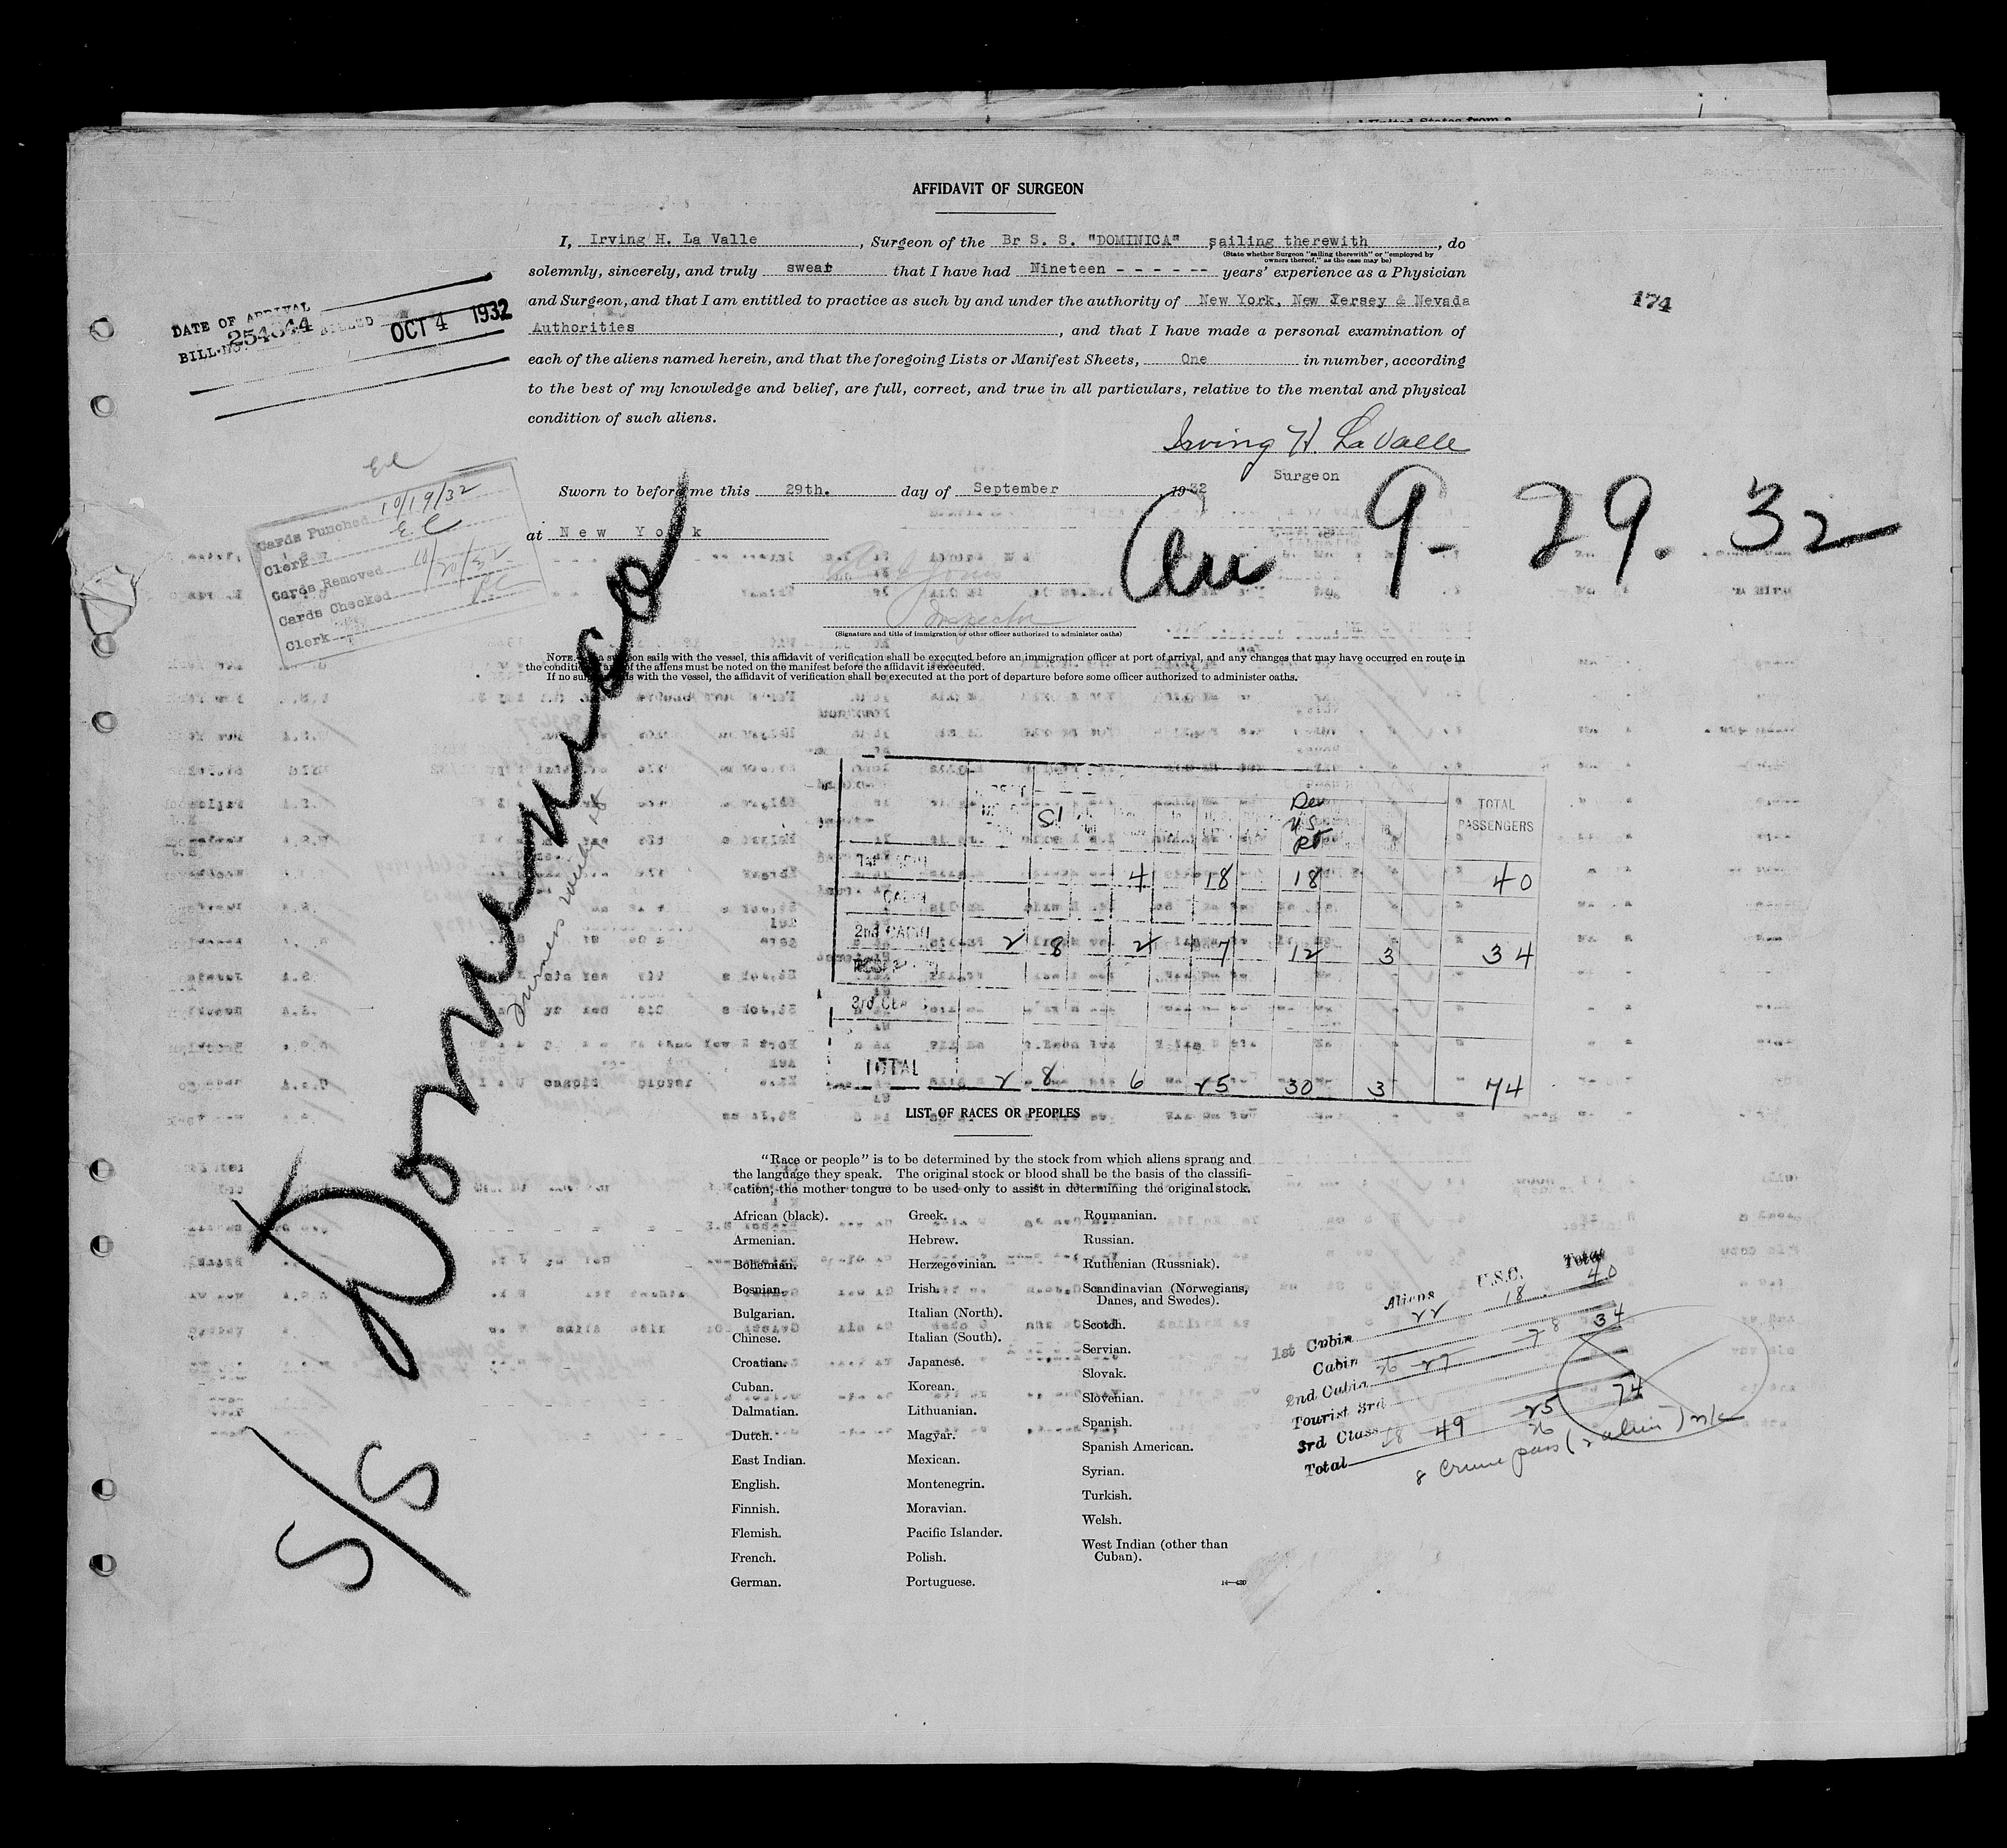 AFFIDAVIT OF SURGEON
I, Irving H. La Valle, Surgeon of the Br S. S. "DOMINICA" sailing therewith, do
(State whether Surgeon "sailing therewith" or "employed by
owners thereof," as the case may be)
solemnly, sincerely, and truly swear that I have had Nineteen - - - - -- years' experience as a Physician
and Surgeon, and that I am entitled to practice as such by and under the authority of New York, New Jersey & Nevada
Authorities, and that I have made a personal examination of
each of the aliens named herein, and that the foregoing Lists or Manifest Sheets, One in number, according
to the best of my knowledge and belief, are full, correct, and true in all particulars, relative to the mental and physical
condition of such aliens.
174
DATE OF ARRIVAL
BILL NO. 254344 BILLED OCT 4 1932
Irving H. La Valle
Surgeon
Sworn to before me this 29th. day of September, 1932
at New York
9- 29. 32
Cards Punched 10/19/32
Clerk
Cards Removed
Cards Checked
Clerk
Inspector
(Signature and title of immigration or other officer authorized to administer oaths)
NOTE. surgeon sails with the vessel, this affidavit of verification shall be executed before an immigration officer at port of arrival, and any changes that may have occurred en route in
the condition of the aliens must be noted on the manifest before the affidavit is executed.
If no surgeon sails with the vessel, the affidavit of verification shall be executed at the port of departure before some officer authorized to administer oaths.
S/S Dominica
SI
TOTAL
PASSENGERS
4 18 18 40
CABIN
2nd CABIN 2 8 2 7 12 3 34
3rd CLASS
TOTAL 2 8 6 25 30 3 74
LIST OF RACES OR PEOPLES
"Race or people" is to be determined by the stock from which aliens sprang and
the language they speak. The original stock or blood shall be the basis of the classifi-
cation, the mother tongue to be used only to assist in determining the original stock.
African (black).
Armenian.
Bohemian.
Bosnian.
Bulgarian.
Chinese.
Croatian.
Cuban.
Dalmatian.
Dutch.
East Indian.
English.
Finnish.
Flemish.
French.
German.
Greek.
Hebrew.
Herzegovinian.
Irish.
Italian (North).
Italian (South).
Japanese.
Korean.
Lithuanian.
Magyar.
Mexican.
Montenegrin.
Moravian.
Pacific Islander.
Polish.
Portuguese.
Roumanian.
Russian.
Ruthenian (Russniak).
Scandinavian (Norwegians,
Danes, and Swedes).
Scotch.
Servian.
Slovak.
Slovenian.
Spanish.
Spanish American.
Syrian.
Turkish.
Welsh.
West Indian (other than
Cuban).
14—430
Aliens U.S.C. Total
1st Cabin 22 18 40
Cabin
2nd Cabin 27 7 34
Tourist 3rd
3rd Class
Total 49 25 74